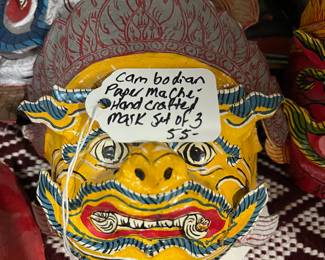 Cambodian
Paper mache -
Hand crafted
mask set of 3
55-